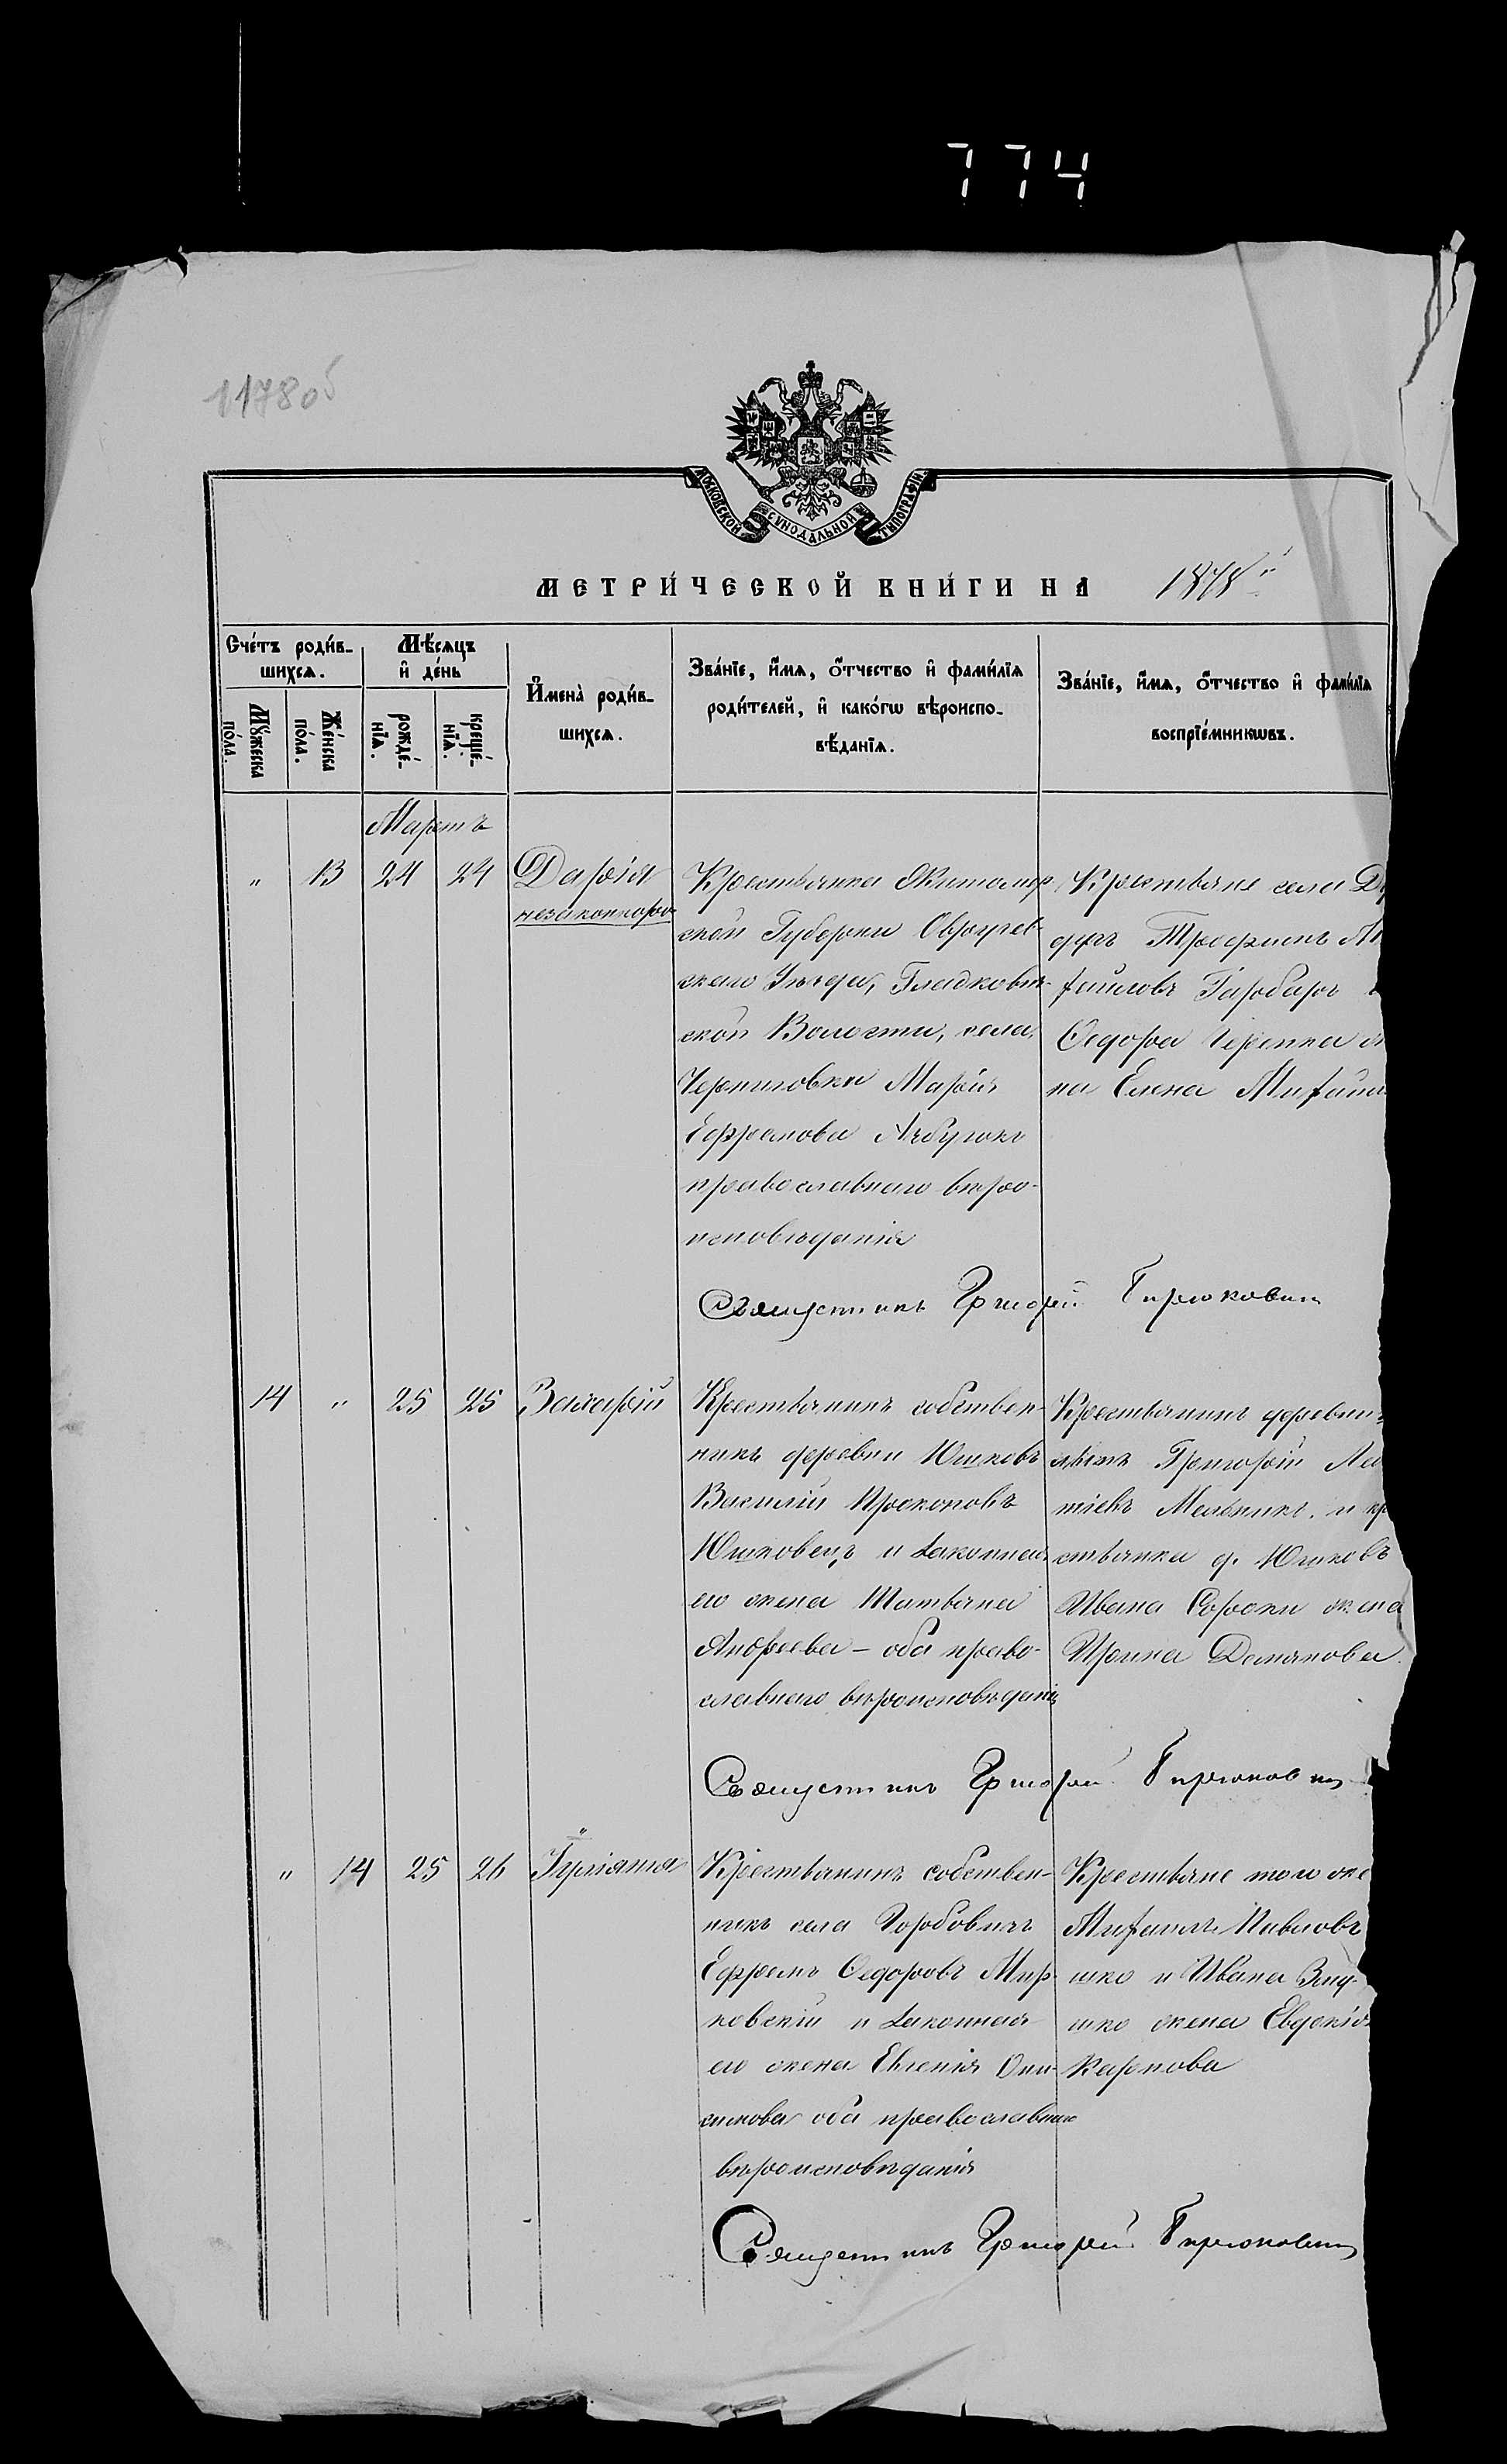 774
1178об
МОСКОВСКОЙ СУНОДАЛЬНОЙ ТЫПОГРАФІИ
МЕТРИ́ЧЕСКОЙ КНИ́ГИ НА 1878
Сче́тъ роди́в-
шихся.
Мѣ́сяцъ
и҆ де́нь
И҆мена̀ роди́в-
шихся.
Зва́нїе, и҆́мя, ѻ҆́тчество и҆ фами́лїя
роди́телей, и҆ како́гѡ вѣроиспо-
вѣ́данїя.
Зва́нїе, и҆́мя, ѻ҆́тчество и҆ фами́лїя
воспрїе́мникѡвъ.
Мꙋ́жеска
по́ла.
Же́нска
по́ла.
рожде́-
нїя.
креще́-
нїя.
Мартъ
" 13 24 24 Дарія
незаконнорож
Крестьянка Житомир
ской Губерніи Овруч
скаго Уѣзда, Гладкович-
ской Волости, села
Черниговки Марія
Ефремова
православнаго вѣро-
исповѣданія
Крестьяне села
Трофимъ
хайловъ Гарбаръ
Ѳедора
на Елена Михаил
Священникъ Григорій
14 " 25 25 Захарій
Крестьянинъ собствен-
никъ деревни Юшковъ
Василій Прокоповъ
Юшковецъ и законная
его жена Татьяна
Андреева - оба право-
славнаго вѣроисповѣданія
Крестьянинъ деревни
Григорій
тіевъ Мельникъ. и кр
стьянка д. Юшковъ
Ивана Сороки жена
Ирина Демянова
Священникъ Григорій
" 14 25 26 Іуліанія
Крестьянинъ собствен-
никъ села
Ефремъ Ѳедоровъ Мир
ковскій и законная
его жена Евгенія Они-
симова оба православнаго
вѣроисповѣданія
Крестьяне того же
Михаилъ Павловъ
шко и Ивана
шко жена Евдокія
Карпова
Священникъ Григорій